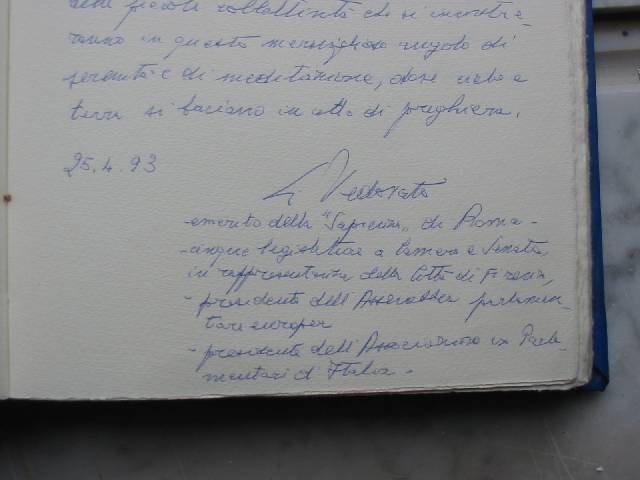 delle piccole collettività che si incontre-
ranno in questo meraviglioso angolo di
serenità e di meditazione, dove cielo e
terra si baciano in atto di preghiera.
25.4.93
G. Vedovato
- emerito della "Sapienza" di Roma -
- cinque legislature a Camera e Senato,
in rappresentanza della città di Firenze,
- presidente dell'Assemblea parlamen-
tare europea
- presidente dell'Associazione ex Parla-
mentari d'Italia -